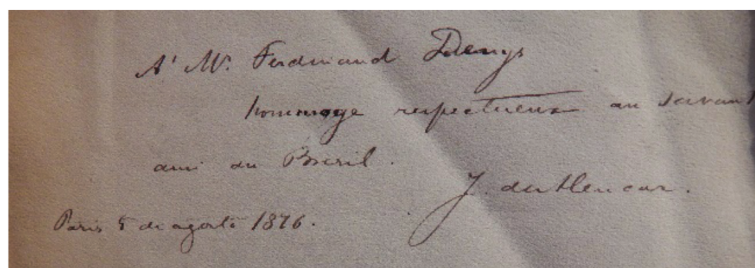 A' Mr. Ferdinand Denys
hommage respectueux au savant
ami du Brésil.
J. de Alencar.
Paris 5 de agosto 1876.